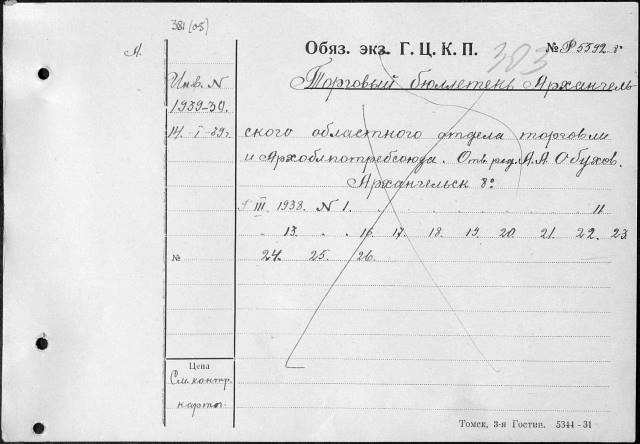 381 (05)
А.
Обяз. экз. Г. Ц. К. П.
303
№ Р5392 г.
Инв. N
1939-30.
14.-I-39г.
Торговый бюллетень Архангель-
ского областного отдела торговли
и Архоблпотребсоюза. Отв. ред. А. А. Обухов.
Архангельск 8º
Г III. 1938. N 1. . . . . . . . . . 11
. 13. . . 16. 17. 18. 19. 20. 21. 22. 23
№
24. 25. 26.
Цена
См. контр.
карты.
Томск, 3-я Гостип. 5344 - 31